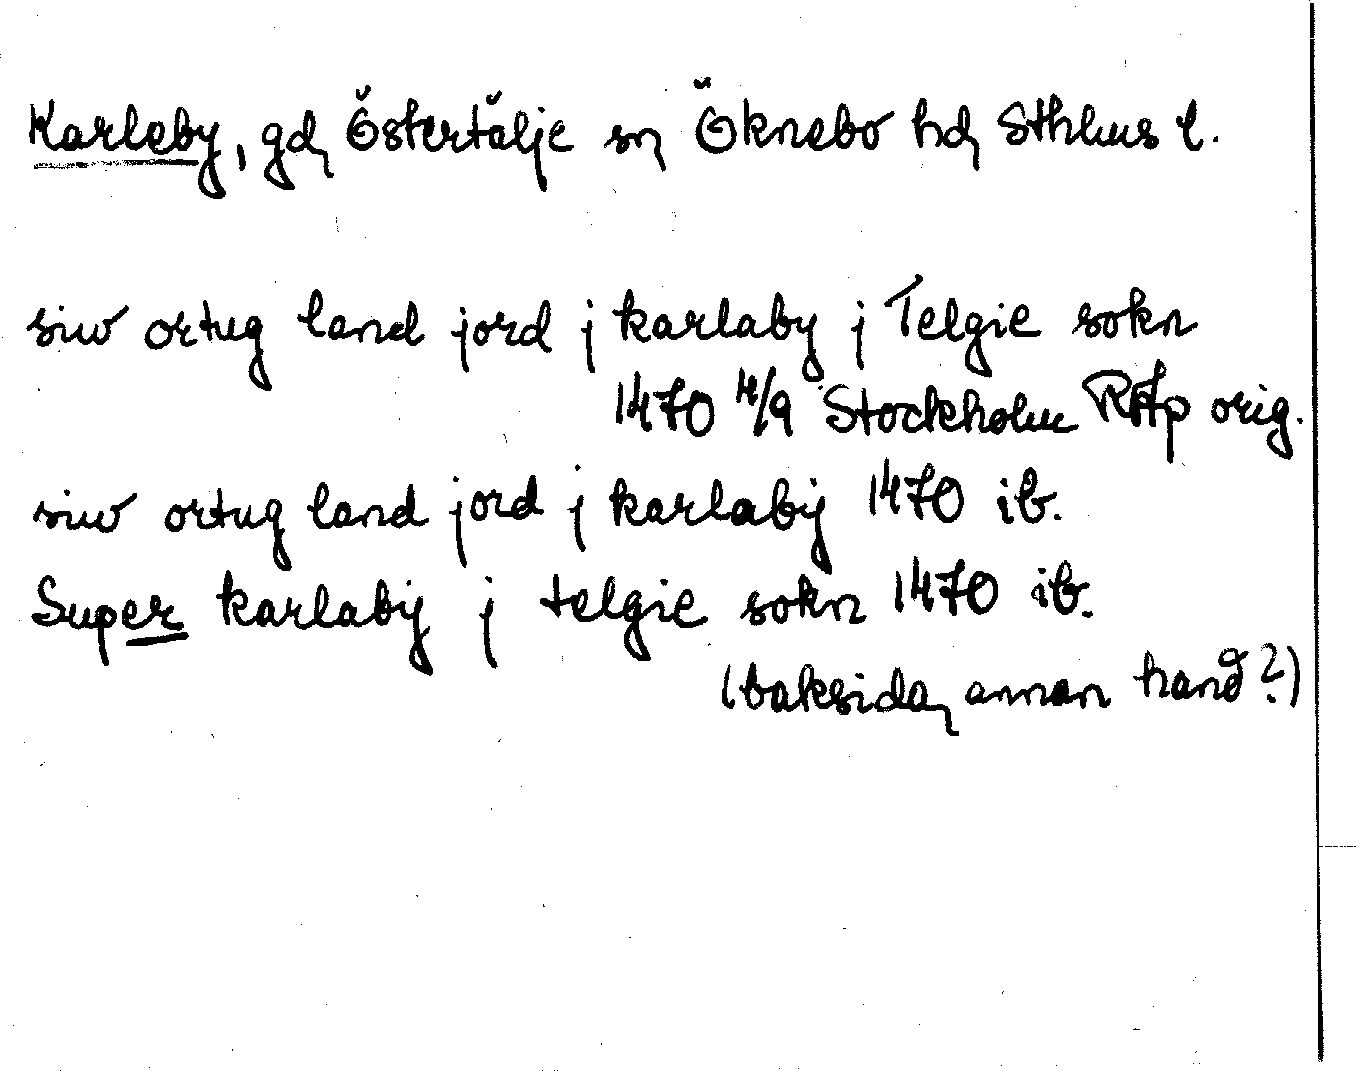 Karleby, gd, Östertälje sn, Öknebo hd, Sthlms l.
siw ortug land jord j karlaby j Telgie sokn
1470 14/9 Stockholm RAp orig.
siw ortug land jord j karlabÿ 1470 ib.
Super karlabÿ j telgie sokn 1470 ib.
(baksida, annan hand?)